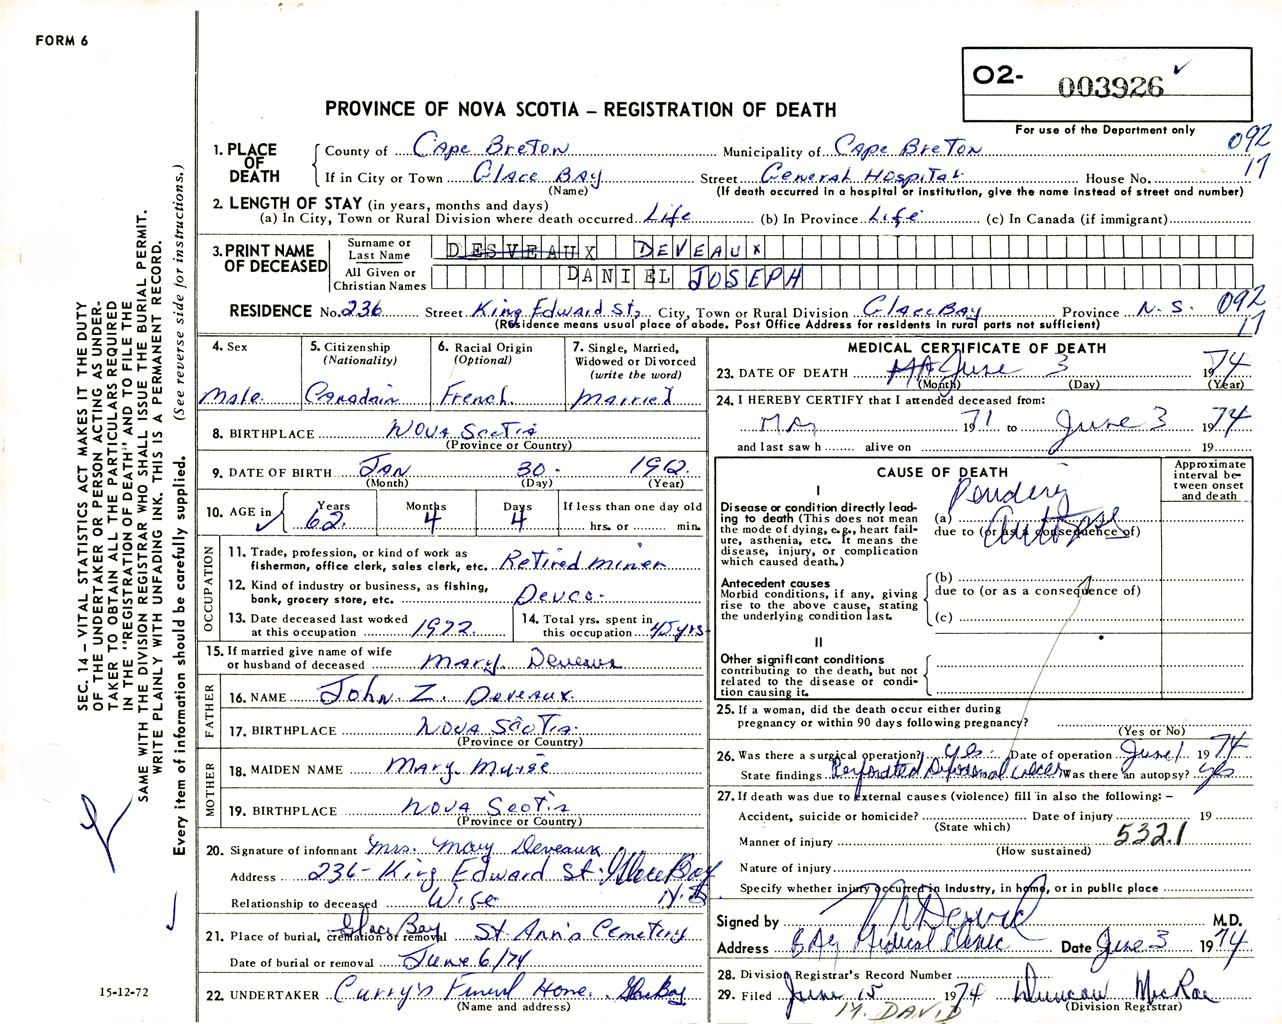 FORM 6
O2- 003926 ✓
PROVINCE OF NOVA SCOTIA – REGISTRATION OF DEATH
For use of the Department only
092
17
SEC. 14 – VITAL STATISTICS ACT MAKES IT THE DUTY
OF THE UNDERTAKER OR PERSON ACTING AS UNDER-
TAKER TO OBTAIN ALL THE PARTICULARS REQUIRED
IN THE "REGISTRATION OF DEATH" AND TO FILE THE
SAME WITH THE DIVISION REGISTRAR WHO SHALL ISSUE THE BURIAL PERMIT.
WRITE PLAINLY WITH UNFADING INK. THIS IS A PERMANENT RECORD.
Every item of information should be carefully supplied. (See reverse side for instructions.)
15-12-72
1. PLACE OF DEATH
County of Cape Breton Municipality of Cape Breton
If in City or Town Glace Bay Street General Hospital House No.
(Name) (If death occurred in a hospital or institution, give the name instead of street and number)
2. LENGTH OF STAY (in years, months and days)
(a) In City, Town or Rural Division where death occurred Life (b) In Province Life (c) In Canada (if immigrant)
3. PRINT NAME OF DECEASED
Surname or Last Name DESVEAUX DEVEAUX
All Given or Christian Names DANIEL JOSEPH
RESIDENCE No. 236 Street King Edward St, City, Town or Rural Division Glace Bay Province N.S. 092
17
(Residence means usual place of abode. Post Office Address for residents in rural parts not sufficient)
4. Sex
Male
5. Citizenship
(Nationality)
Canadain
6. Racial Origin
(Optional)
French
7. Single, Married,
Widowed or Divorced
(write the word)
Married
8. BIRTHPLACE Nova Scotia
(Province or Country)
9. DATE OF BIRTH Jan 30 1912
(Month) (Day) (Year)
10. AGE in Years 62 Months 4 Days 4 If less than one day old
hrs. or min.
OCCUPATION
11. Trade, profession, or kind of work as
fisherman, office clerk, sales clerk, etc. Retired miner
12. Kind of industry or business, as fishing,
bank, grocery store, etc. Devco
13. Date deceased last worked
at this occupation 1972
14. Total yrs. spent in
this occupation 45 yrs
15. If married give name of wife
or husband of deceased Mary Deveaux
FATHER
16. NAME John Z. Deveaux
17. BIRTHPLACE Nova Scotia
(Province or Country)
MOTHER
18. MAIDEN NAME Mary Muise
19. BIRTHPLACE Nova Scotia
(Province or Country)
20. Signature of informant Mrs. Mary Deveaux
Address 236 - King Edward St. Glace Bay
N.S.
Relationship to deceased Wife
21. Place of burial, cremation or removal Glace Bay St. Ann's Cemetery
Date of burial or removal June 6/74
22. UNDERTAKER Curry's Funeral Home. Glace Bay
(Name and address)
MEDICAL CERTIFICATE OF DEATH
23. DATE OF DEATH June 3 1974
(Month) (Day) (Year)
24. I HEREBY CERTIFY that I attended deceased from:
May 1971 to June 3 1974
and last saw h alive on 19
CAUSE OF DEATH
Approximate
interval be-
tween onset
and death
I
Disease or condition directly lead-
ing to death (This does not mean
the mode of dying, e.g., heart fail-
ure, asthenia, etc. It means the
disease, injury, or complication
which caused death.)
(a) Pending
due to (or as a consequence of)
Autopsy
Antecedent causes
Morbid conditions, if any, giving
rise to the above cause, stating
the underlying condition last.
(b)
due to (or as a consequence of)
(c)
II
Other significant conditions
contributing to the death, but not
related to the disease or condi-
tion causing it.
25. If a woman, did the death occur either during
pregnancy or within 90 days following pregnancy?
(Yes or No)
26. Was there a surgical operation? Yes. Date of operation June 1 1974
State findings Perforated Duodenal ulcer Was there an autopsy? Yes
27. If death was due to external causes (violence) fill in also the following: –
Accident, suicide or homicide? Date of injury 19
(State which)
Manner of injury 532.1
(How sustained)
Nature of injury
Specify whether injury occurred in industry, in home, or in public place
Signed by M.D.
Address Bay Medical Clinic Date June 3 1974
28. Division Registrar's Record Number
29. Filed June 15 1974 Duncan MacRae
(Division Registrar)
M. DAVID